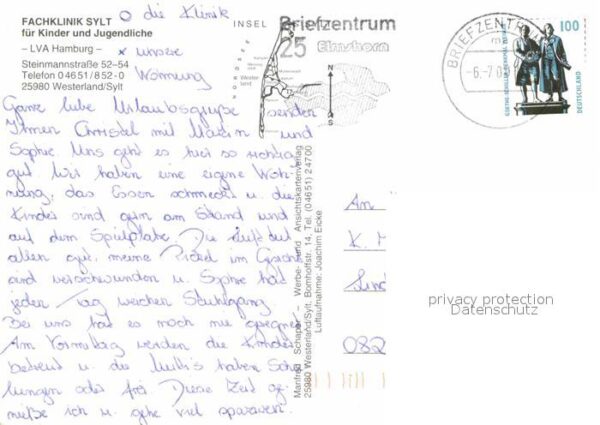 o die Klinik
FACHKLINIK SYLT
für Kinder und Jugendliche
– LVA Hamburg –
x unsere
Wohnung
Steinmannstraße 52–54
Telefon 0 46 51 / 8 52 - 0
25980 Westerland/Sylt
INSEL
NORDSEE
Wester
land
Briefzentrum
25 Elmshorn
BRIEFZENTRUM
-6.-7.0
100
DEUTSCHLAND
Ganz liebe Urlaubsgrüße senden
Ihnen Christel mit und
Sophie. Uns geht es hier so richtig
gut. Wir haben eine eigene Woh-
nung, das Essen schmeckt u. die
Kinder sind gern am Strand und
auf dem Spielplatz. Die Luft tut
allen gut, meine Pickel im Gesicht
sind verschwunden u. Sophie hat
jeden Tag weichen Stuhlgang.
Bei uns hat es noch nie geregnet.
Am Vormittag werden die Kinder
betreut u. die Mutti's haben Schu-
lungen oder frei. Diese Zeit ge-
nieße ich u. gehe viel spazieren.
Manfred Schaper – Werbe- und Ansichtskartenverlag
25980 Westerland/Sylt, Bomhoffstr. 14, Tel. (04651) 24700
Luftaufnahme: Joachim Eicke
An
K.
082
privacy protection
Datenschutz